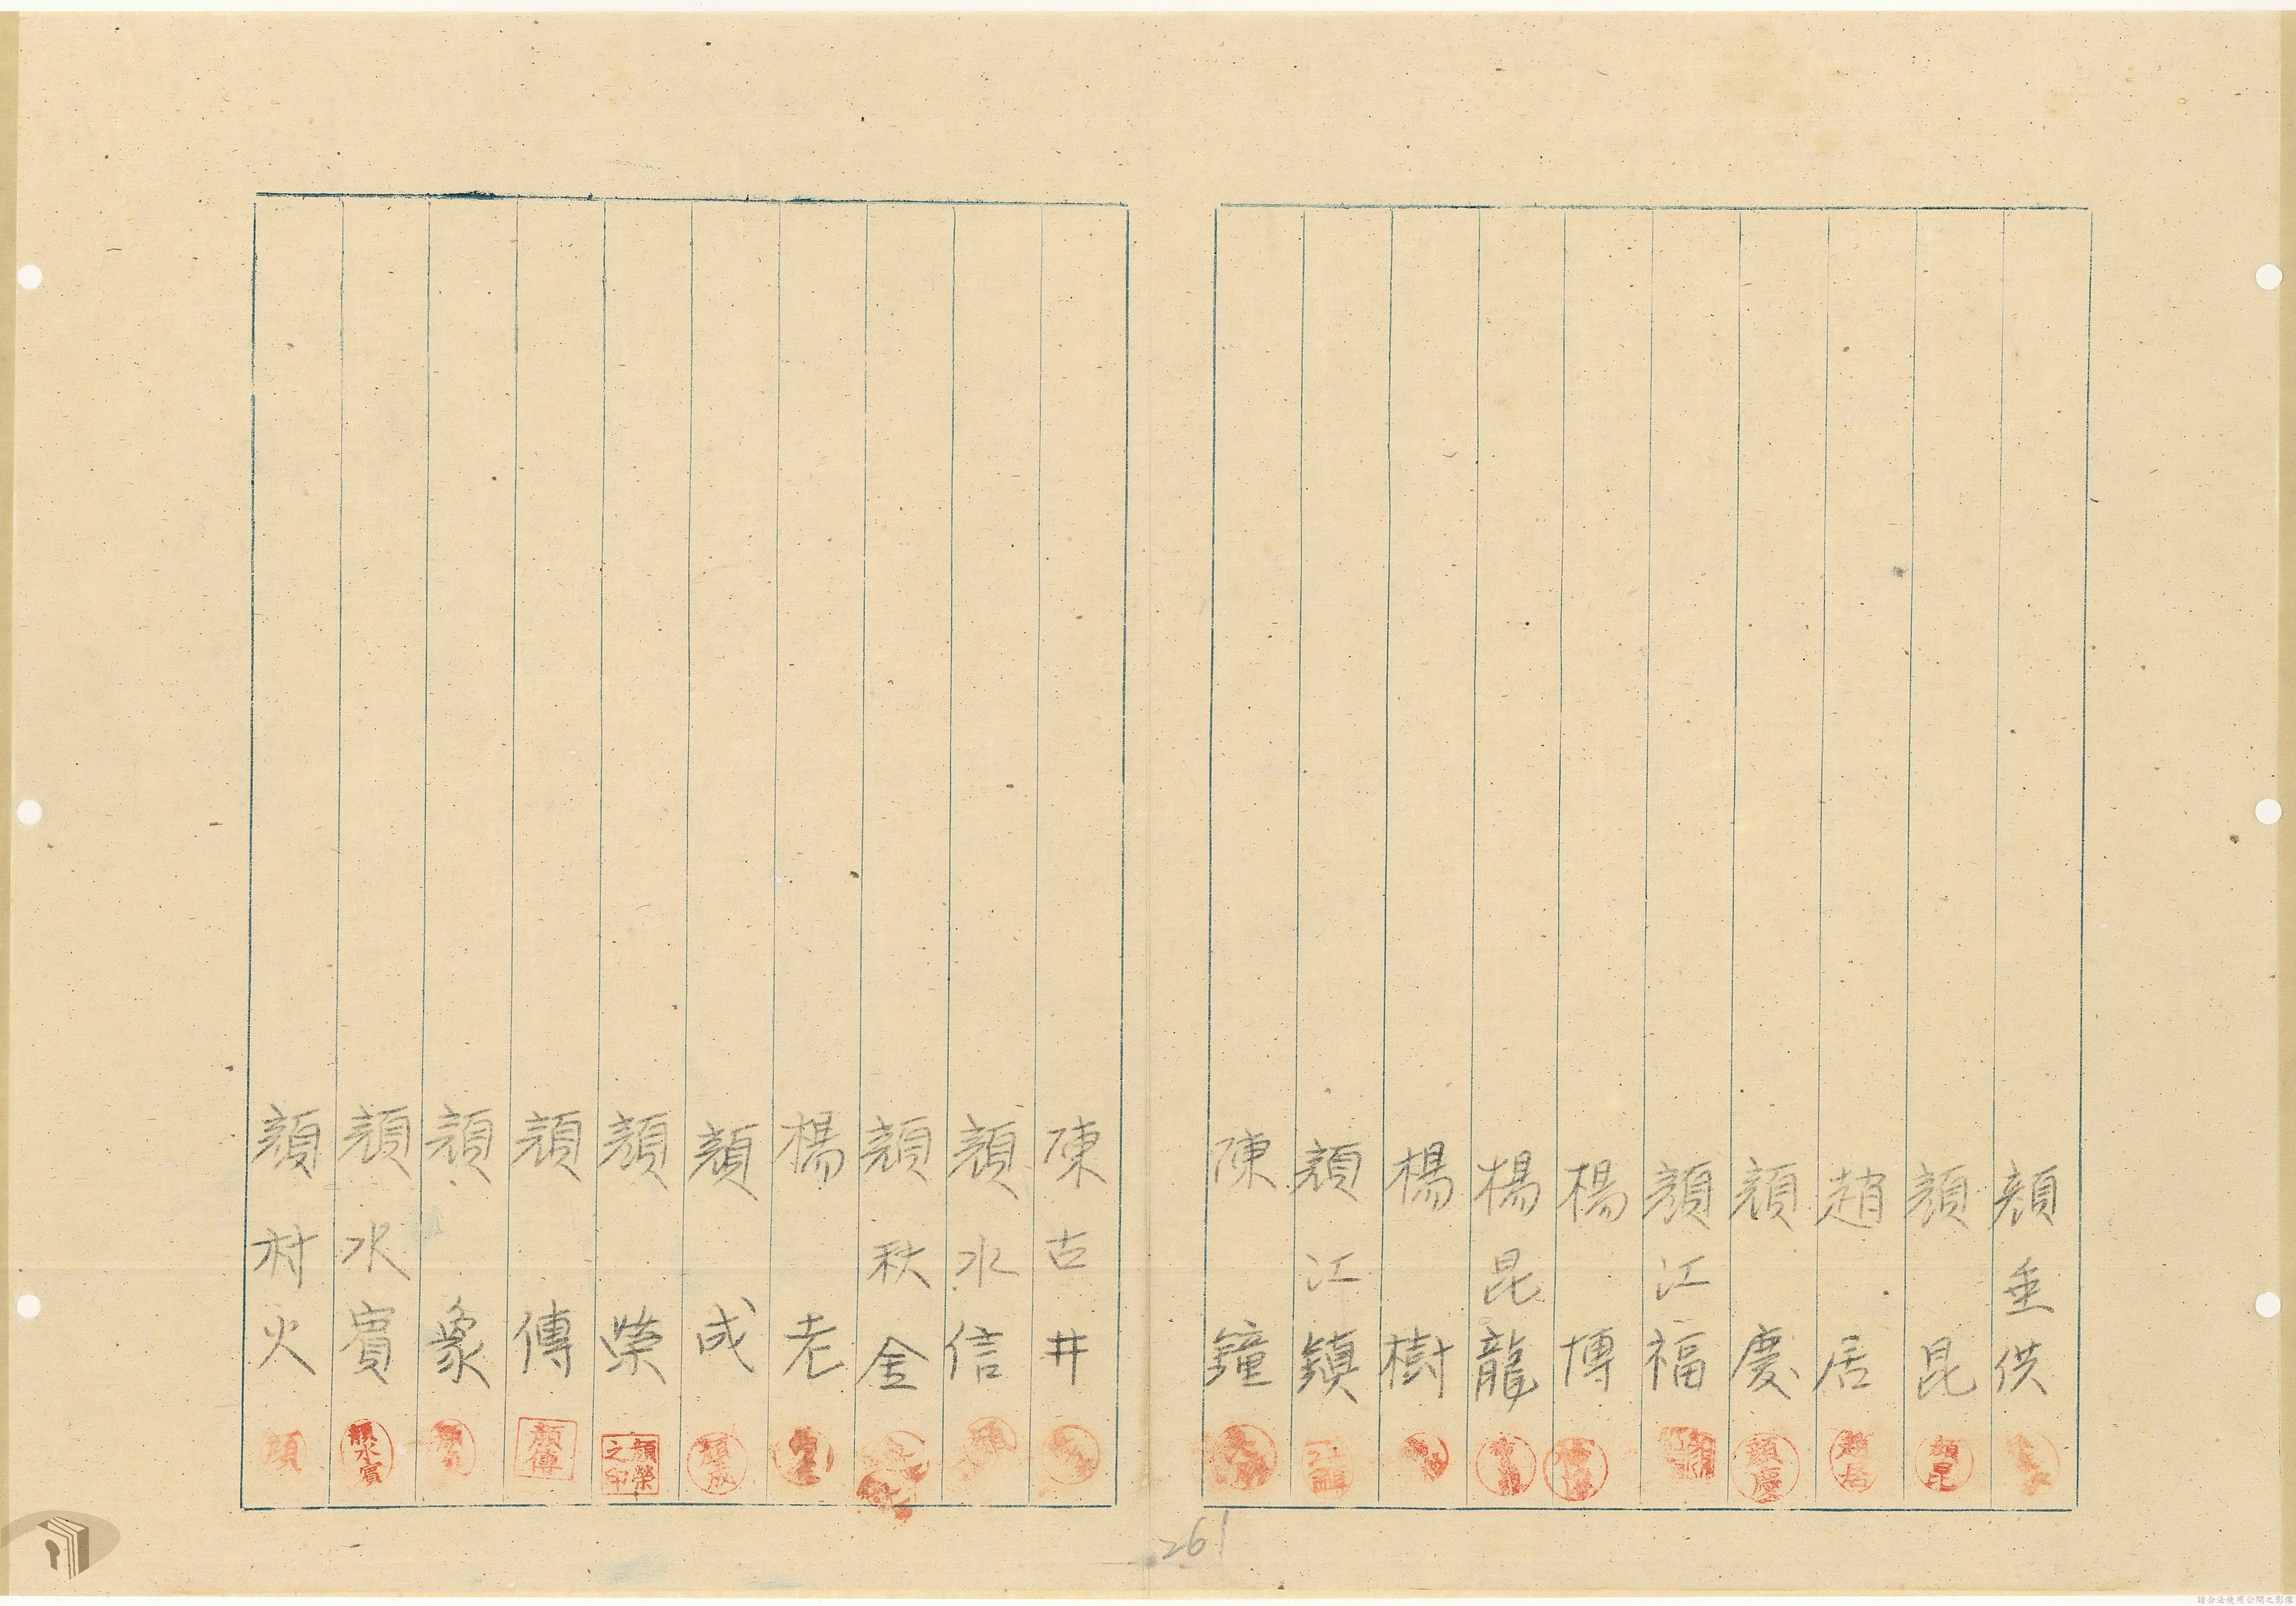 顏垂供
顏昆
趙居
顏慶
顏江福
楊博
楊昆龍
楊樹
顏江鎮
陳鐘
陳古井
顏水信
顏秋金
楊老
顏成
顏榮
顏傳
顏象
顏水賓
顏村火
顏昆
趙居
顏慶
顏成
顏榮之印
顏傳
顏水賓
顏
261
請合法使用公開之影像